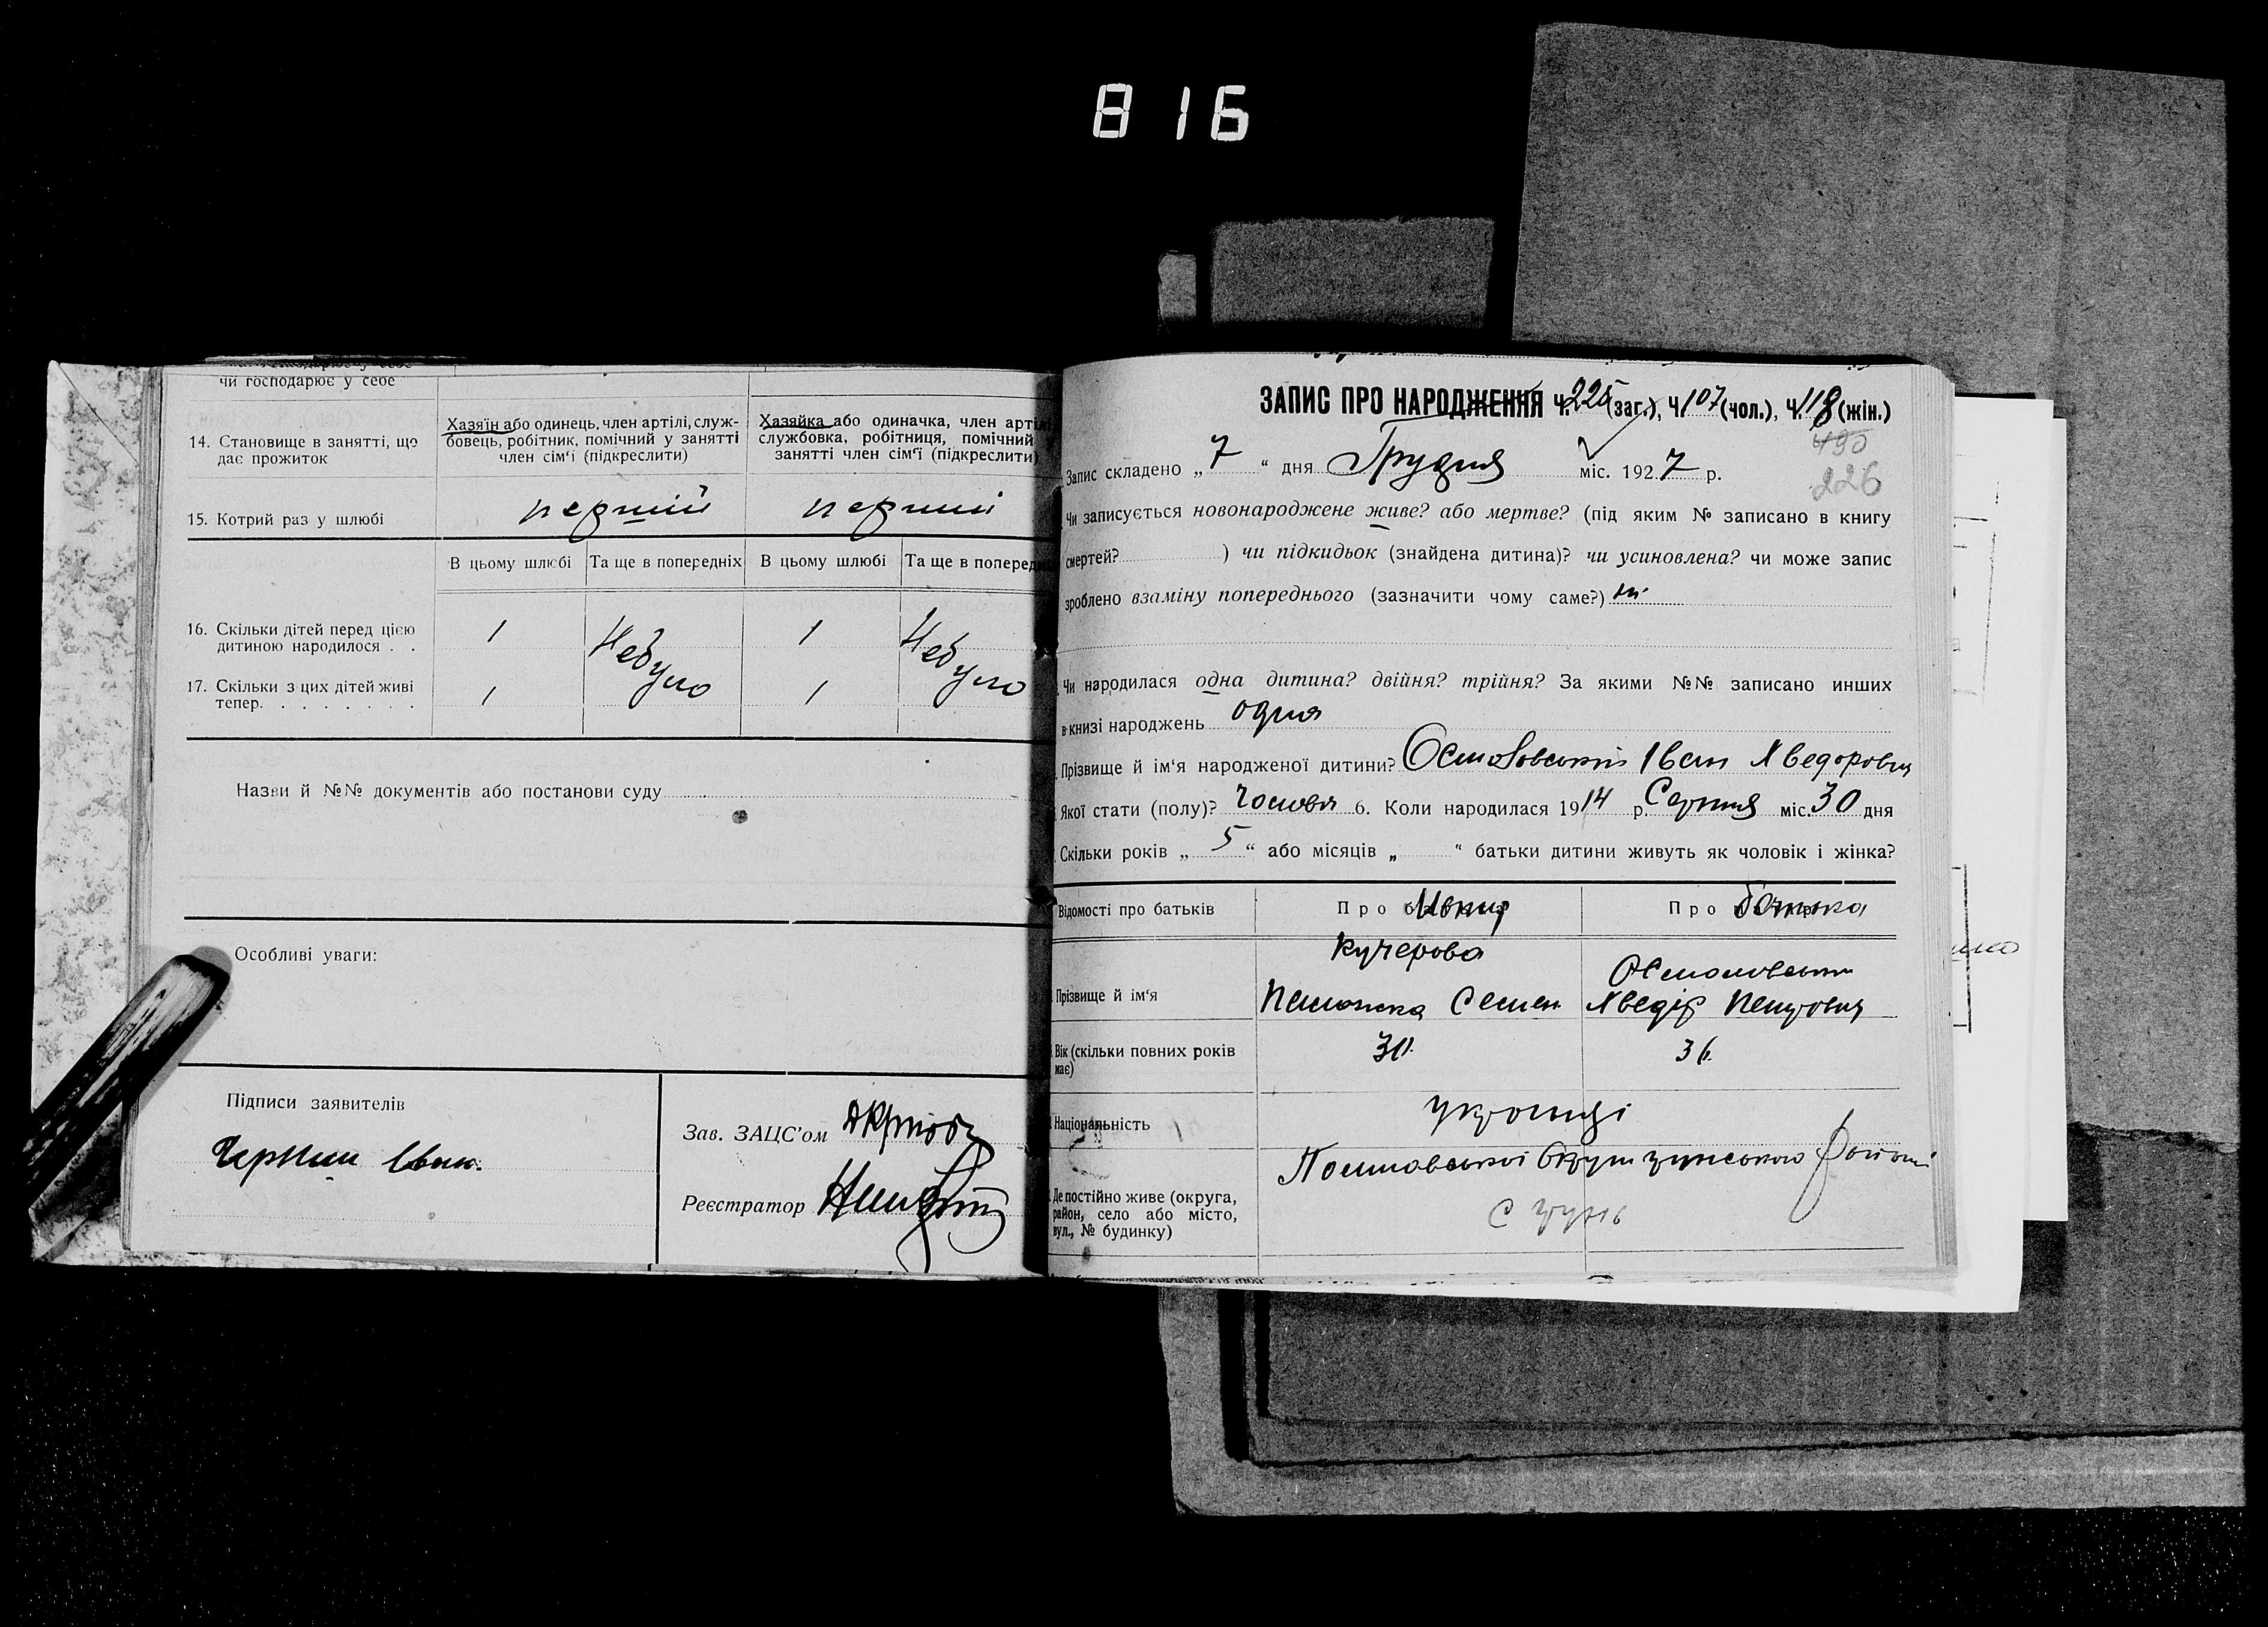 816
чи господарює у себе
14. Становище в занятті, що дає прожиток
Хазяїн або одинець, член артілі, служ-
бовець, робітник, помічний у занятті
член сім'ї (підкреслити)
Хазяйка або одиначка, член арті
службовка, робітниця, помічний
занятті член сім'ї (підкреслити)
15. Котрий раз у шлюбі перший перший
В цьому шлюбі Та ще в попередніх В цьому шлюбі Та ще в поперед
16. Скільки дітей перед цією
дитиною народилося . . 1 Небуло 1 Небуло
17. Скільки з цих дітей живі
тепер. . . . . . . . 1 1
Назви й №№ документів або постанови суду
Особливі уваги:
Підписи заявителів
Іван.
Зав. ЗАЦС'ом
Реєстратор
ЗАПИС ПРО НАРОДЖЕННЯ Ч. 225 (заг.), Ч 107 (чол.), Ч. 118 (жін.)
490
226
Запис складено „ 7 “ дня Грудня міс. 1927 р.
Чи записується новонароджене живе? або мертве? (під яким № записано в книгу
смертей? ) чи підкидьок (знайдена дитина)? чи усиновлена? чи може запис
зроблено взаміну попереднього (зазначити чому саме?) ні
Чи народилася одна дитина? двійня? трійня? За якими №№ записано инших
в книзі народжень одна
Прізвище й ім'я народженої дитини? Іван Хведорович
Якої стати (полу)? 6. Коли народилася 1914 р. Серпня міс. 30 дня
Скільки років „ 5 “ або місяців „ “ батьки дитини живуть як чоловік і жінка?
Відомості про батьків Про Про батька
Прізвище й ім'я
Кучерова
Семен
Хведір Петрович
Вік (скільки повних років
має) 30. 36.
Національність українці
Де постійно живе (округа,
район, село або місто,
вул., № будинку)
Полтавської Округи району
с Грунь